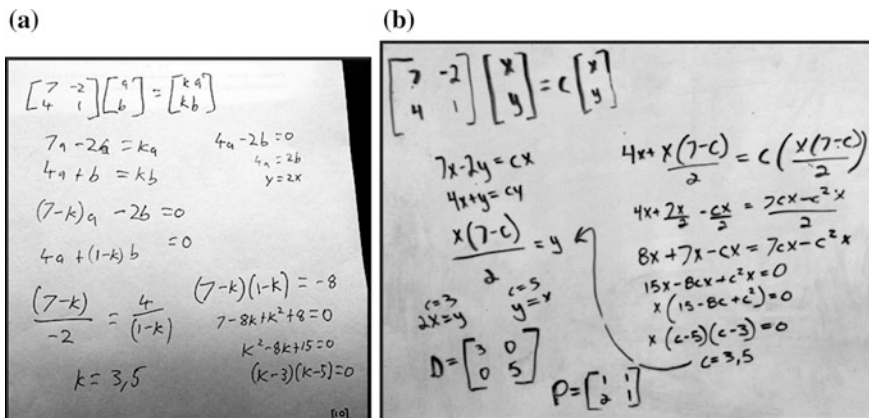 (a)
[7 -2; 4 1] [a; b] = [ka; kb]
7a - 2b = ka
4a + b = kb
(7-k)a - 2b = 0
4a + (1-k)b = 0
4a - 2b = 0
4a = 2b
y = 2x
(7-k)/-2 = 4/(1-k)
k = 3,5
(7-k)(1-k) = -8
7 - 8k + k² + 8 = 0
k² - 8k + 15 = 0
(k-3)(k-5) = 0
[10]
(b)
[7 -2; 4 1] [x; y] = c [x; y]
7x - 2y = cx
4x + y = cy
x(7-c)/2 = y
c=3
2x = y
c=5
y = x
D = [3 0; 0 5]
P = [1 1; 2 1]
4x + x(7-c)/2 = c (x(7-c)/2)
4x + 7x/2 - cx/2 = 7cx - c²x/2
8x + 7x - cx = 7cx - c²x
15x - 8cx + c²x = 0
x(15 - 8c + c²) = 0
x(c-5)(c-3) = 0
c = 3,5